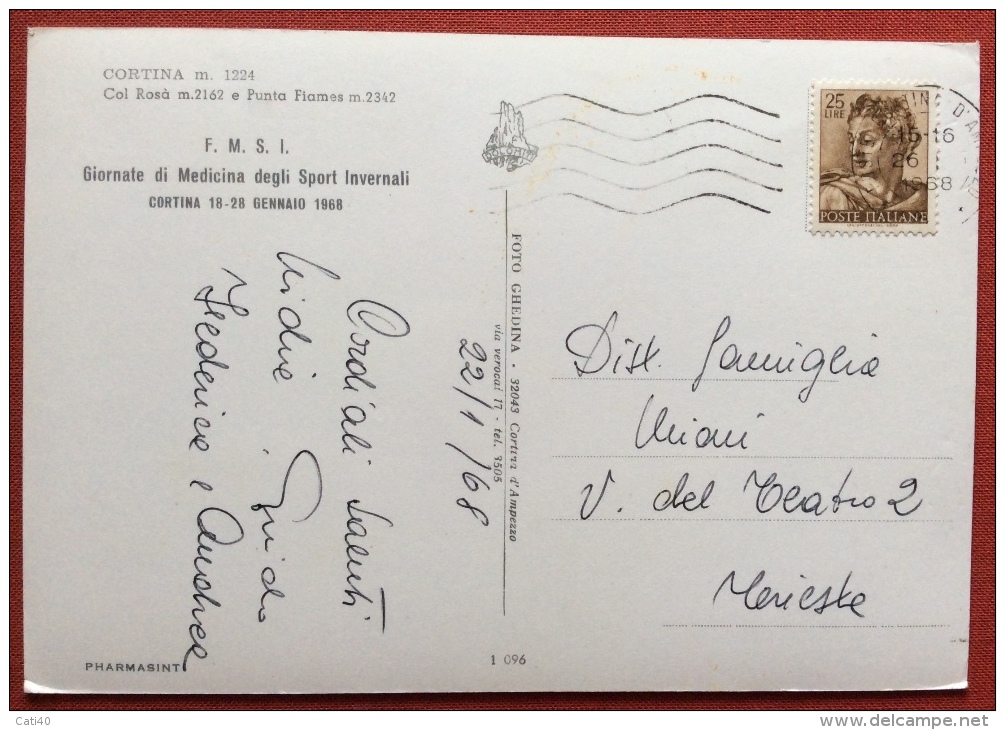 CORTINA m. 1224
Col Rosà m.2162 e Punta Fiames m.2342
F. M. S. I.
Giornate di Medicina degli Sport Invernali
CORTINA 18-28 GENNAIO 1968
22/1/68
Cordiali saluti
Lidia, Guido
Federica e Andrea
PHARMASINT
FOTO GHEDINA - 32043 Cortina d'Ampezzo
via verocai 17 - tel. 3505
1 096
25
LIRE
POSTE ITALIANE
15-16
26
1968
Dist. Famiglia
V. del Teatro 2
Trieste
Cati40
www.delcampe.net